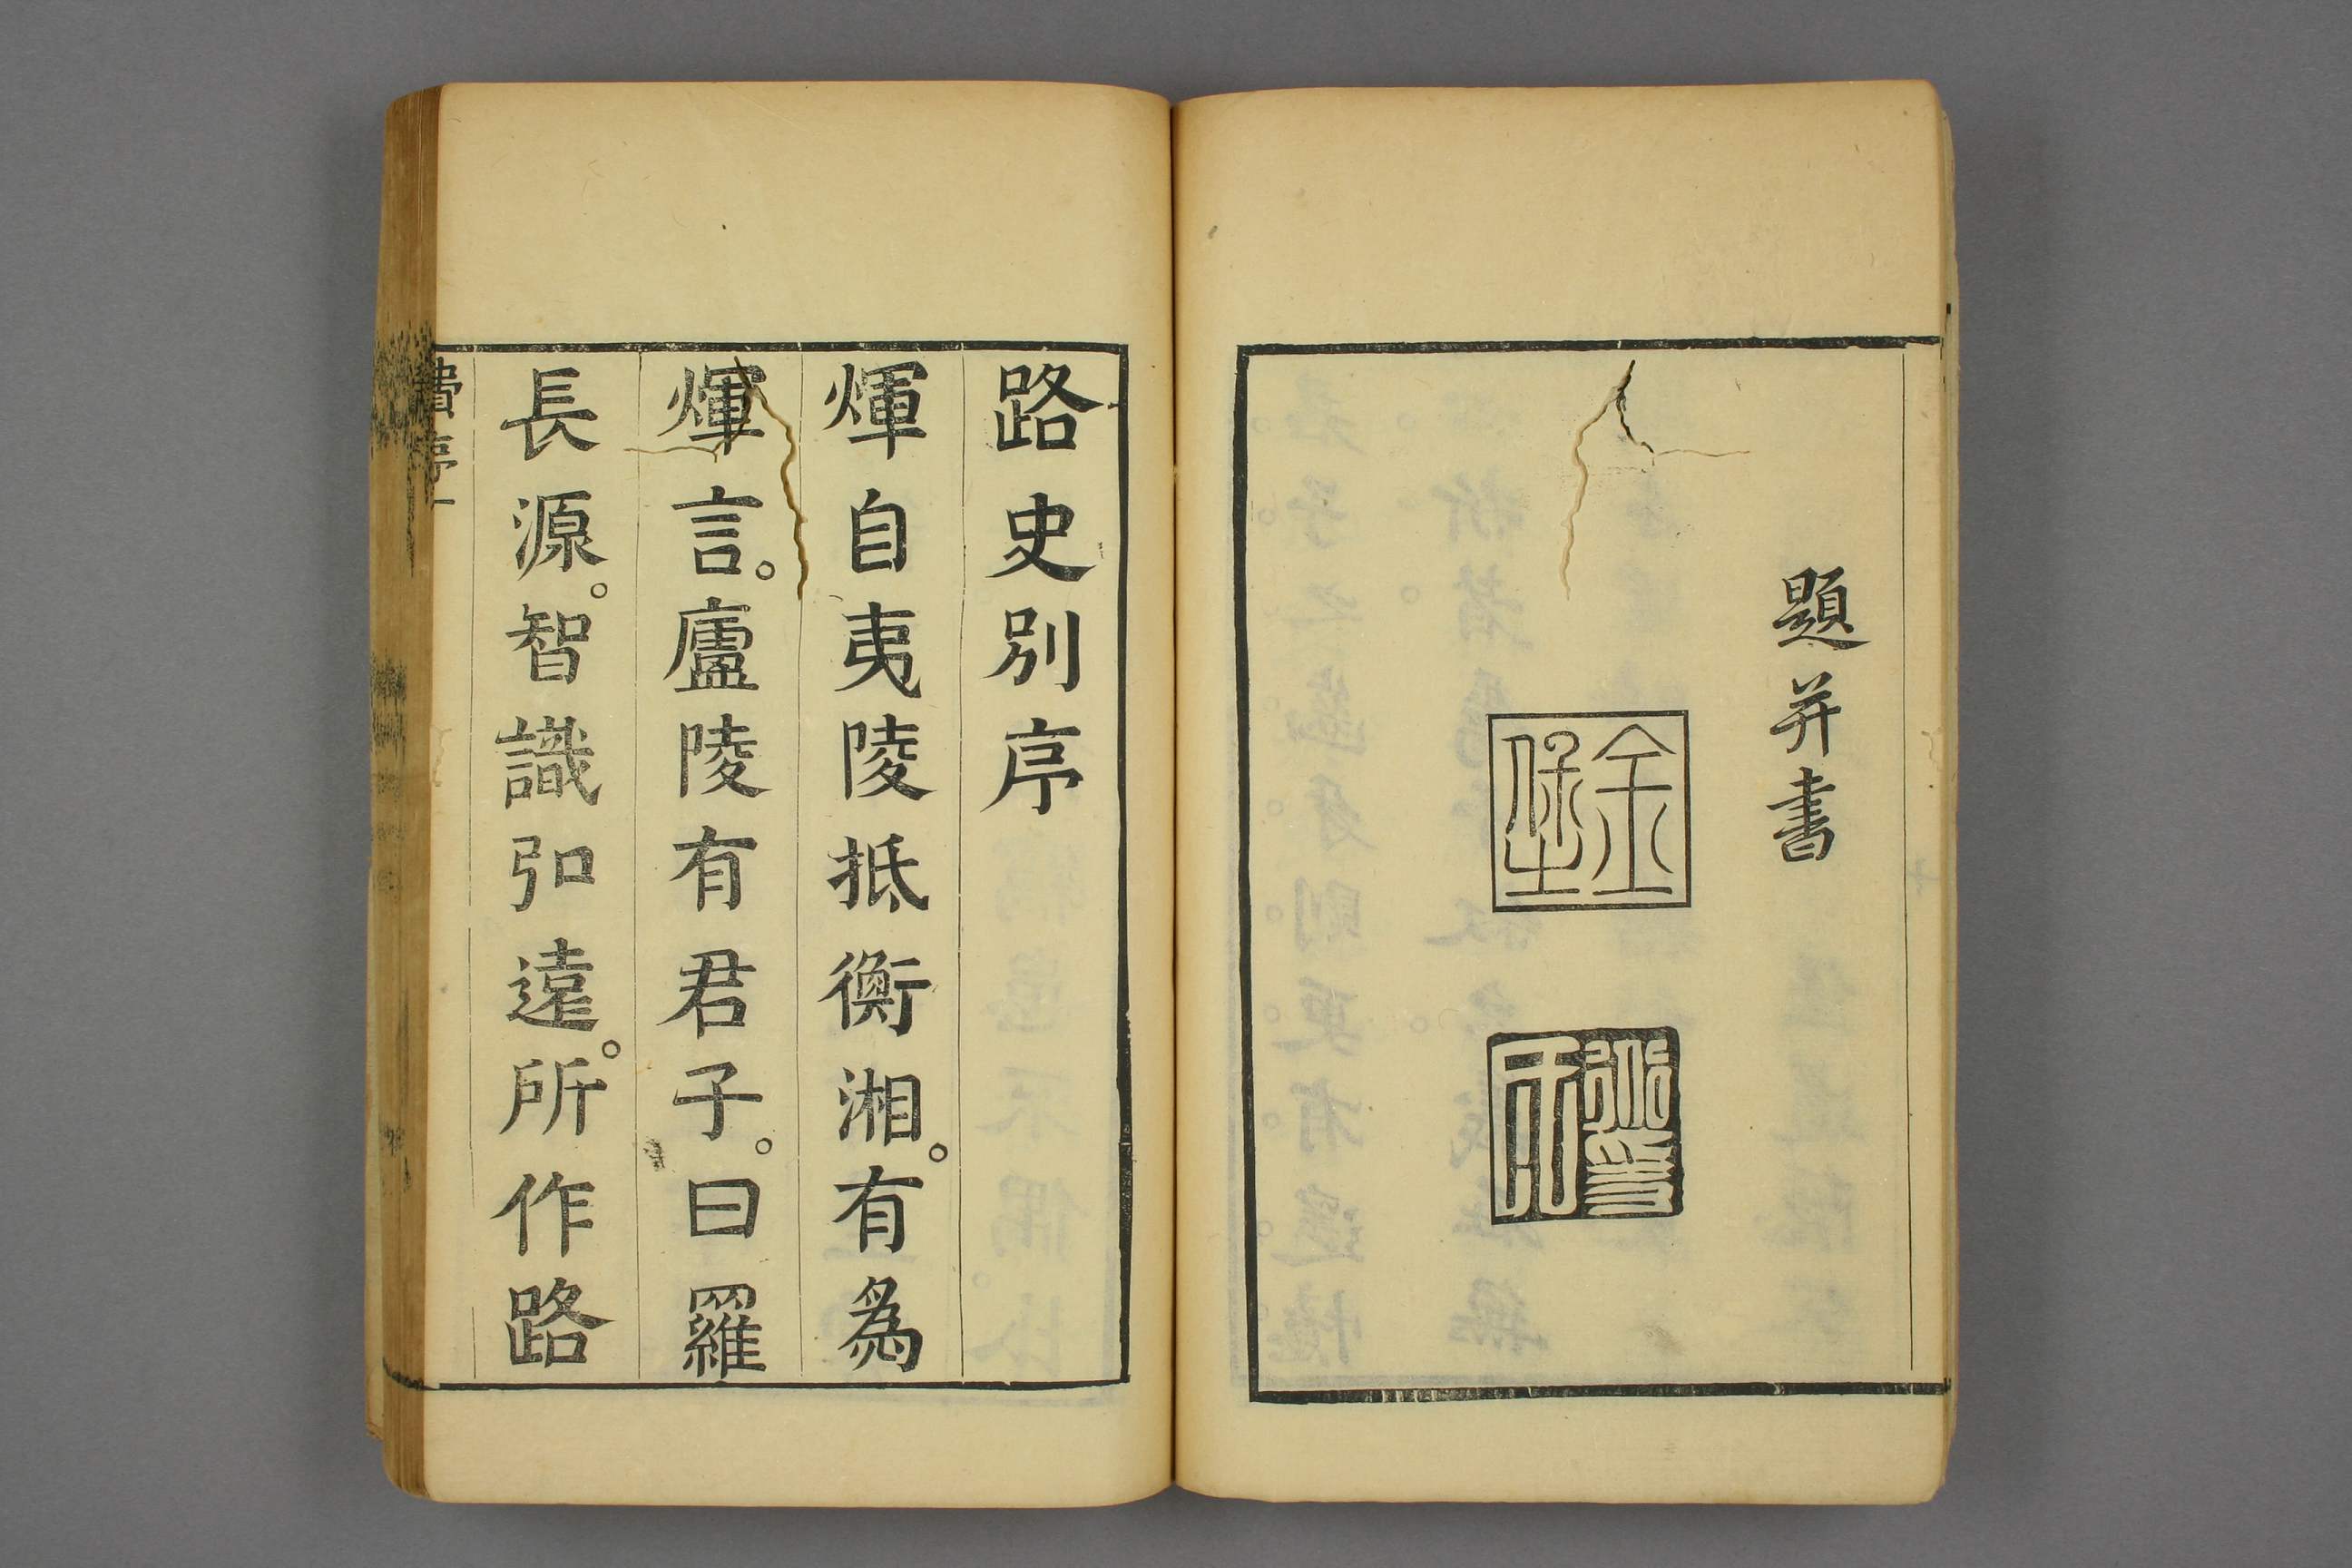 題并書
金堡
路史別序
煇自夷陵抵衡湘。有為
煇言。廬陵有君子。曰羅
長源。智識弘遠。所作路
費序 一